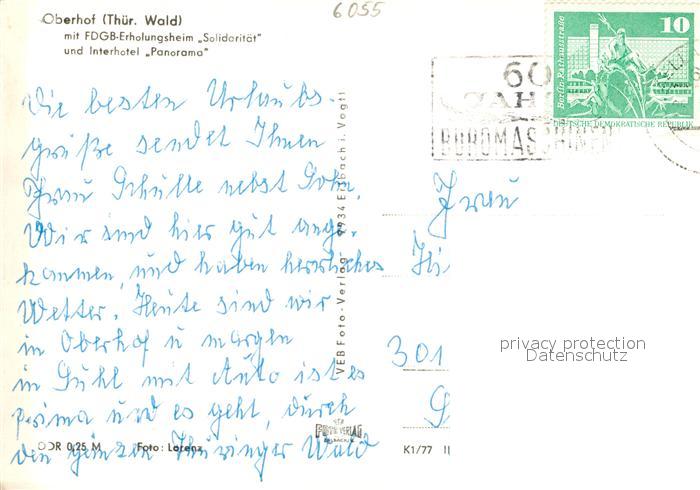 6055
Oberhof (Thür. Wald)
mit FDGB-Erholungsheim „Solidarität"
und Interhotel „Panorama"
Die besten Urlaubs-
grüße sendet Ihnen
Frau Schulte nebst Sohn.
Wir sind hier gut ange-
kommen, und haben herrliches
Wetter. Heute sind wir
in Oberhof u morgen
in Suhl mit Auto ist es
prima und es geht, durch
den ganzen Thüringer Wald
DDR 0,25 M Foto: Lorenz
VEB Foto-Verlag 9934 Erlbach i. Vogtl
FOTO VERLAG
K1/77
60
BÜROMASCHINEN
Berlin-Rathausstraße
10
DEUTSCHE DEMOKRATISCHE REPUBLIK
Frau
301
privacy protection
Datenschutz